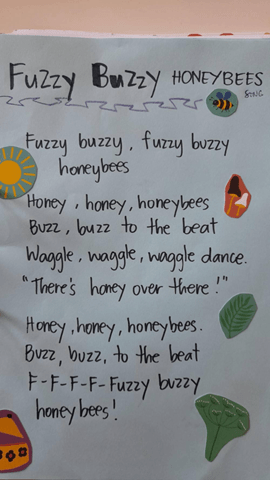 Fuzzy Buzzy HONEYBEES
Fuzzy buzzy, fuzzy buzzy
honeybees
Honey, honey, honeybees
Buzz, buzz to the beat
Waggle, waggle, waggle dance.
"There's honey over there!"
Honey, honey, honeybees.
Buzz, buzz, to the beat
F-F-F-F-Fuzzy buzzy
honeybees!